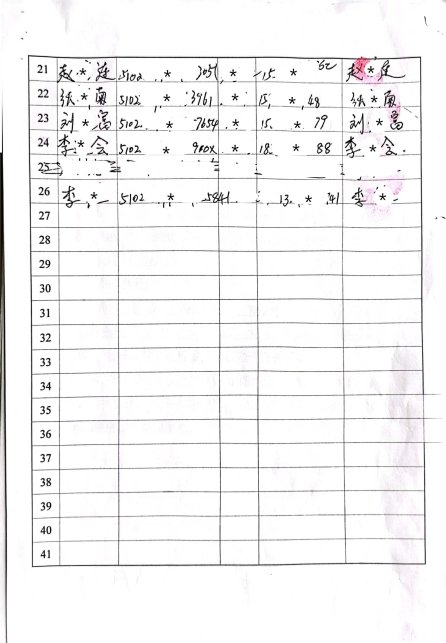 21 赵*廷 5102 * 3051 * 15 * 52 赵*廷
22 张*南 5102 * 3961 * 15 * 48 张*南
23 刘*富 5102 * 7654 * 15 * 79 刘*富
24 李*会 5102 * 900X * 18 * 88 李*会
25
26 李* 5102 * 5841 13 * 41 李*
27
28
29
30
31
32
33
34
35
36
37
38
39
40
41